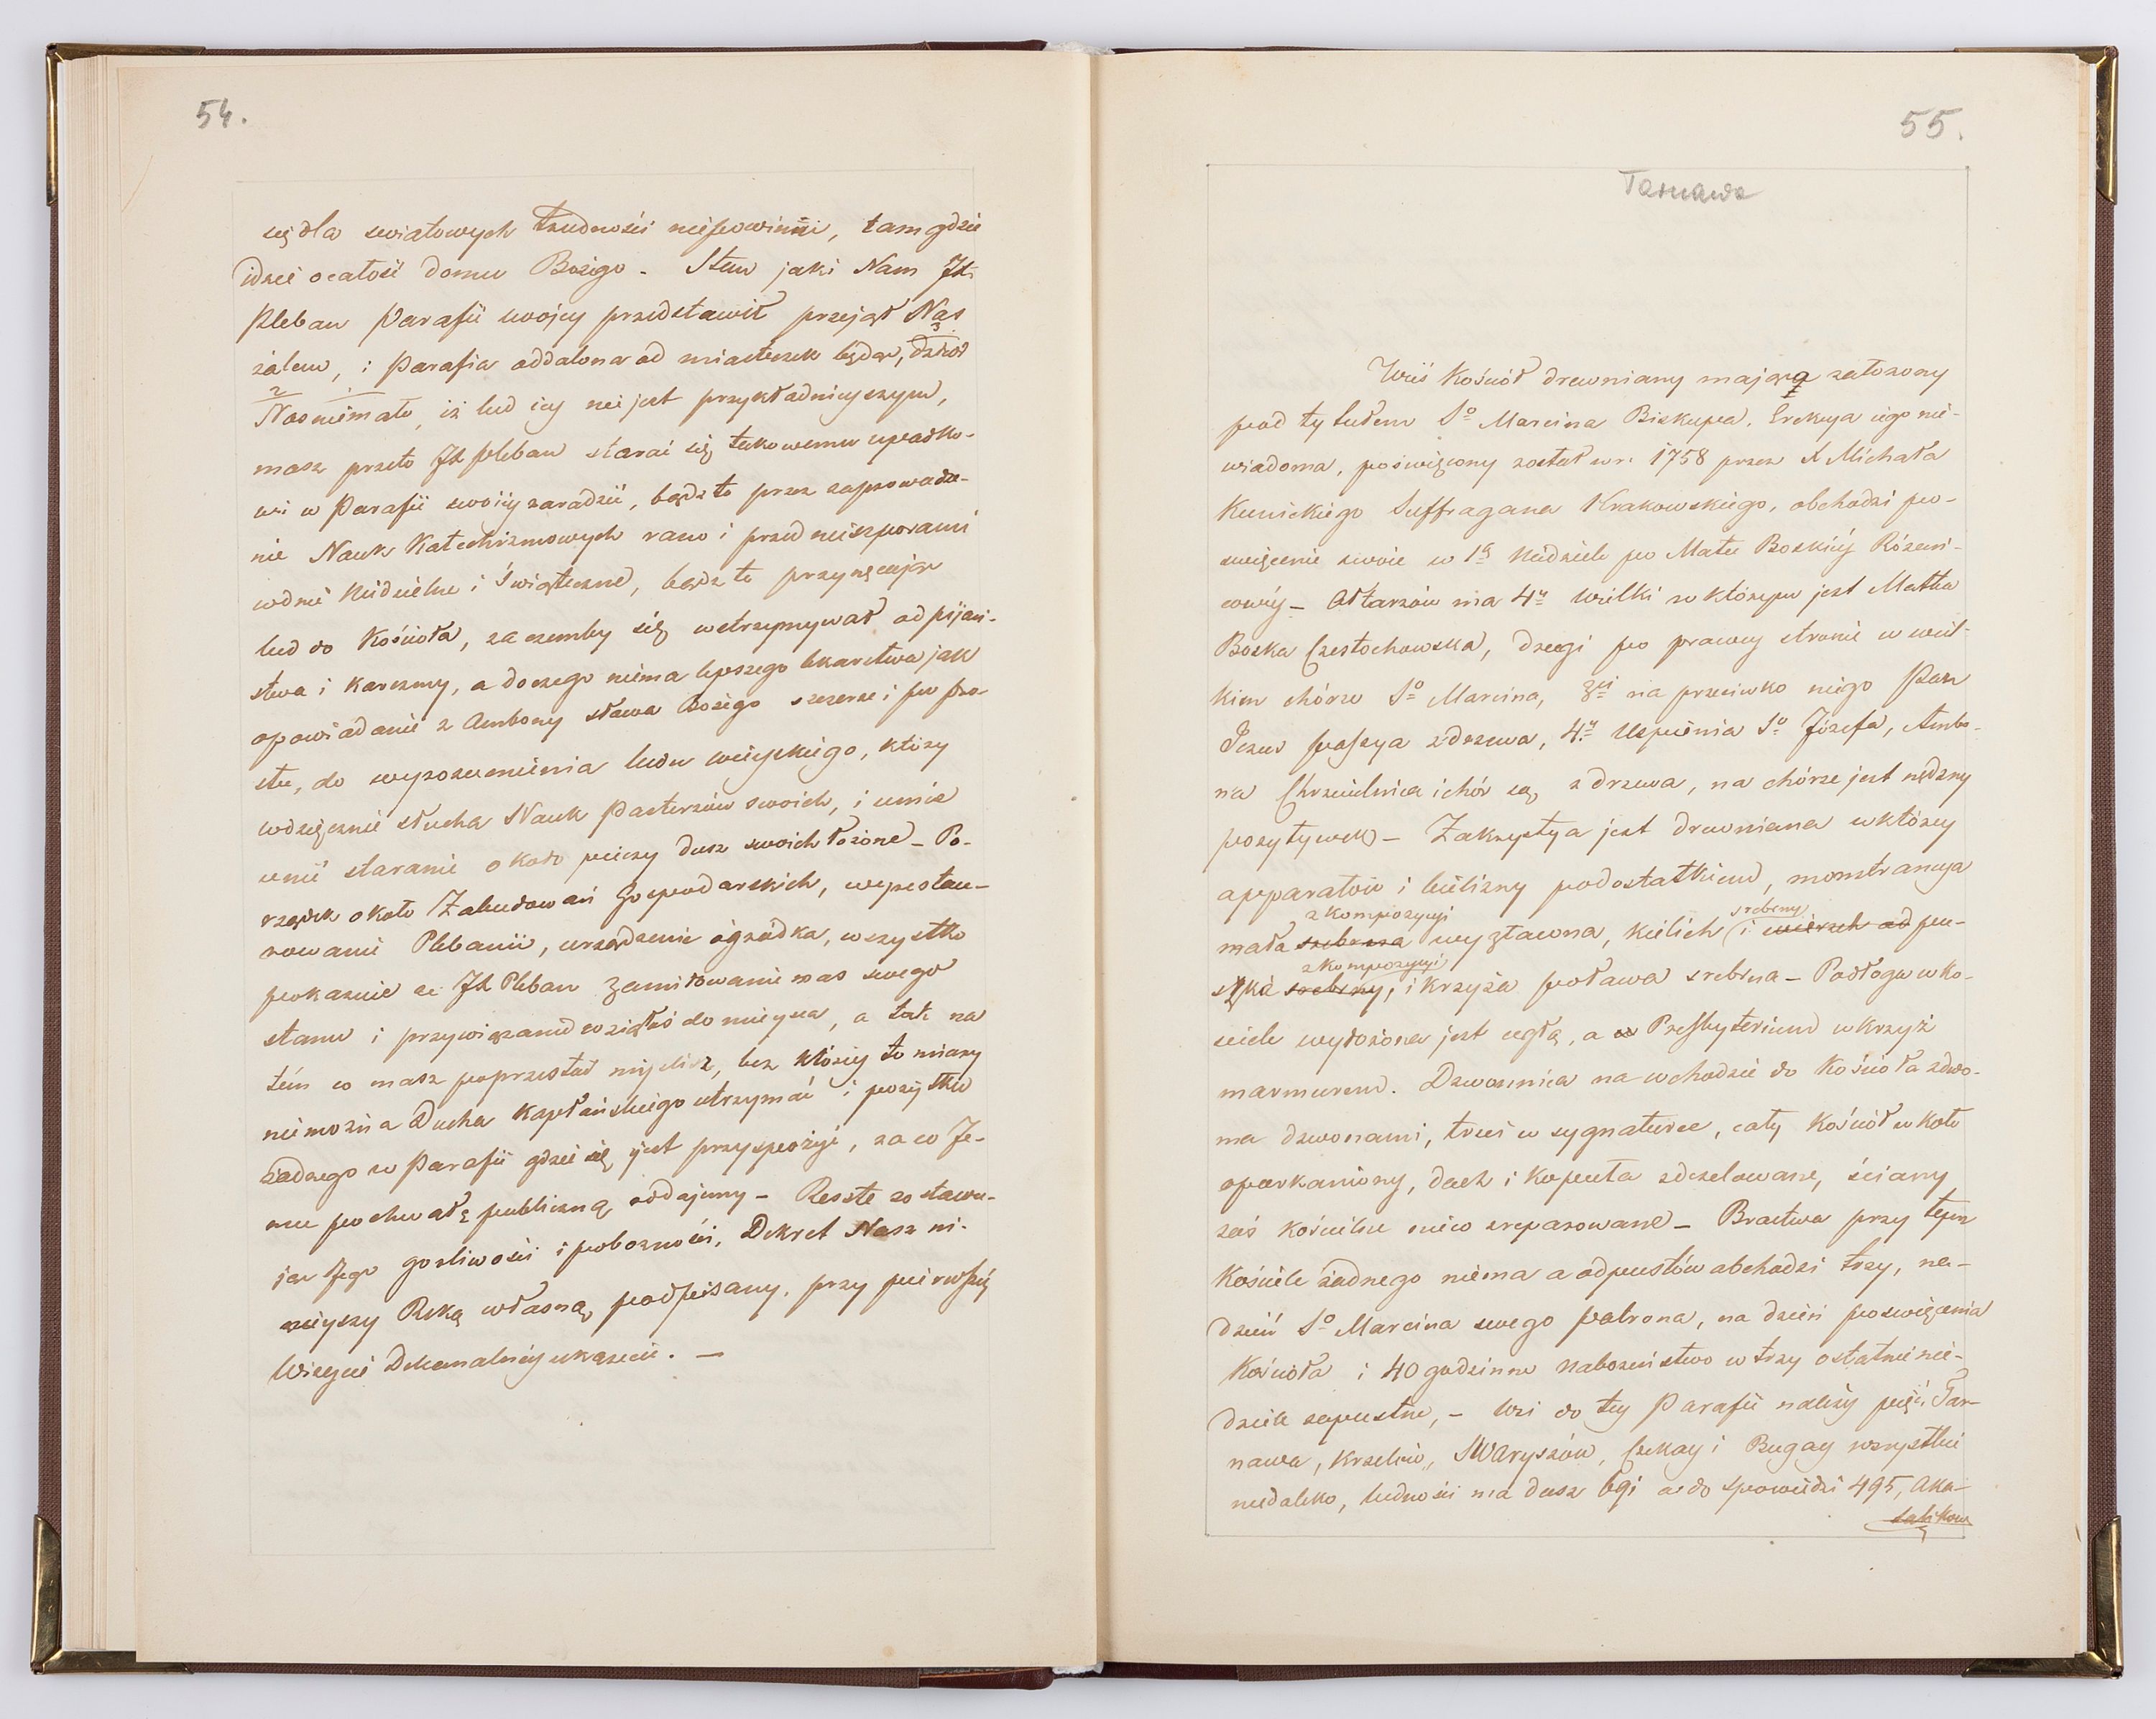 54.
się dla swiatowych trudności niepowinni, tam gdzie
idzie o całość domu Bożego - Stan jaki Nam JX
Pleban Parafii swojey przedstawił przejął Nas
żalem, i Parafia oddalona od miasteczek będąc, dziwi
Nas niemało, iż lud iey nie jest przykładnieyszym,
masz przeto JX Pleban starać się takowemu upadko-
wi w Parafii swoiey zaradzić, bądz to przez zaprowadze-
nie Nauk Katechizmowych rano i przed nieszporami
w dnie Niedzielne i Świąteczne, bądz to przynęcając
lud do Kościoła, za czemby się wstrzymywał od pijań-
stwa i karczmy, a do czego niema lepszego lekarstwa jak
opowiadanie z Ambony słowa Bożego szczerze i po pro-
stu, do wyrozumienia ludu wieyskiego, który
wdzięcznie słucha Nauk Pasterzów swoich, i umie
cenić staranie około pieczy dusz swoich łożone - Po-
rządek około Zabudowań Gospodarskich, wyrestau-
rowanie Plebanii, urządzenie ogródka, wszystko
pokazuie że JX Pleban zamiłowanie masz swego
stanu i przywiązanie wziąłeś do mieysca, a tak na
tém co masz poprzestać myślisz, bez któréy to miary
niemożna Ducha Kapłańskiego utrzymać i pożytku
żadnego w Parafii gdzie się jest przysporzyć, za co Je-
mu pochwałę publiczną oddajemy - Resztę zostawu-
jąc Jego gorliwości i pobożności, Dekret Nasz ni-
nieyszy Ręką własną podpisany, przy pierwszéy
Wizycie Dekanalnéy ukażecie. -
55.
Tarnawa
Wieś Kościół drewniany mająca założony
pod tytułem So Marcina Biskupa. Erekcya iego nie-
wiadoma, poświęcony został w r. 1758 przez X Michała
Kunickiego Suffragana Krakowskiego, obchodzi po-
swięcenie swoie w 1ą Niedziele po Matce Boskiéy Różań-
cowéy - Ołtarzów ma 4y Wielki w którym jest Matka
Boska Częstochowska, drugi po prawey stronie w wiel-
kim chórze So Marcina, 3ci na przeciwko niego Pan
Jezus passya z drzewa, 4y Uspienia So Józefa, Ambo-
na Chrzcielnica i chór są z drzewa, na chórze jest nędzny
pozytywek - Zakrystya jest drewniana w którey
apparatów i bielizny podostatkiem, monstrancya
z kompozycyi srebrny
mała srebrna wyzłacona, kielich i wierzch od pu-
z kompozycyi
szki srebrny, i krzyża połowa srebrna - Podłoga w ko-
sciele wyłożona jest cegłą, a w Presbyterium w krzyż
marmurem. Dzwonnica na wchodzie do Kościoła z dwo-
ma dzwonami, trzeci w sygnaturce, cały Kościół w koło
oparkaniony, dach i kopuła zdezelowane, ściany
zaś kościelne nieco zreparowane - Bractwa przy tym
Kościele żadnego niema a odpustów obchodzi trzy, na-
dzień So Marcina swego patrona, na dzień poswięcenia
Kościoła i 40 godzinne nabożeństwo w trzy ostatnie nie-
dziele zapustne, - Wsi do tey Parafii należy pięć Tar-
nawa, Krzelów, Maryszów, Czekay i Bugay wszystkie
niedaleko, ludności ma dusz 691 a do spowiedzi 495, Aka-
tolików